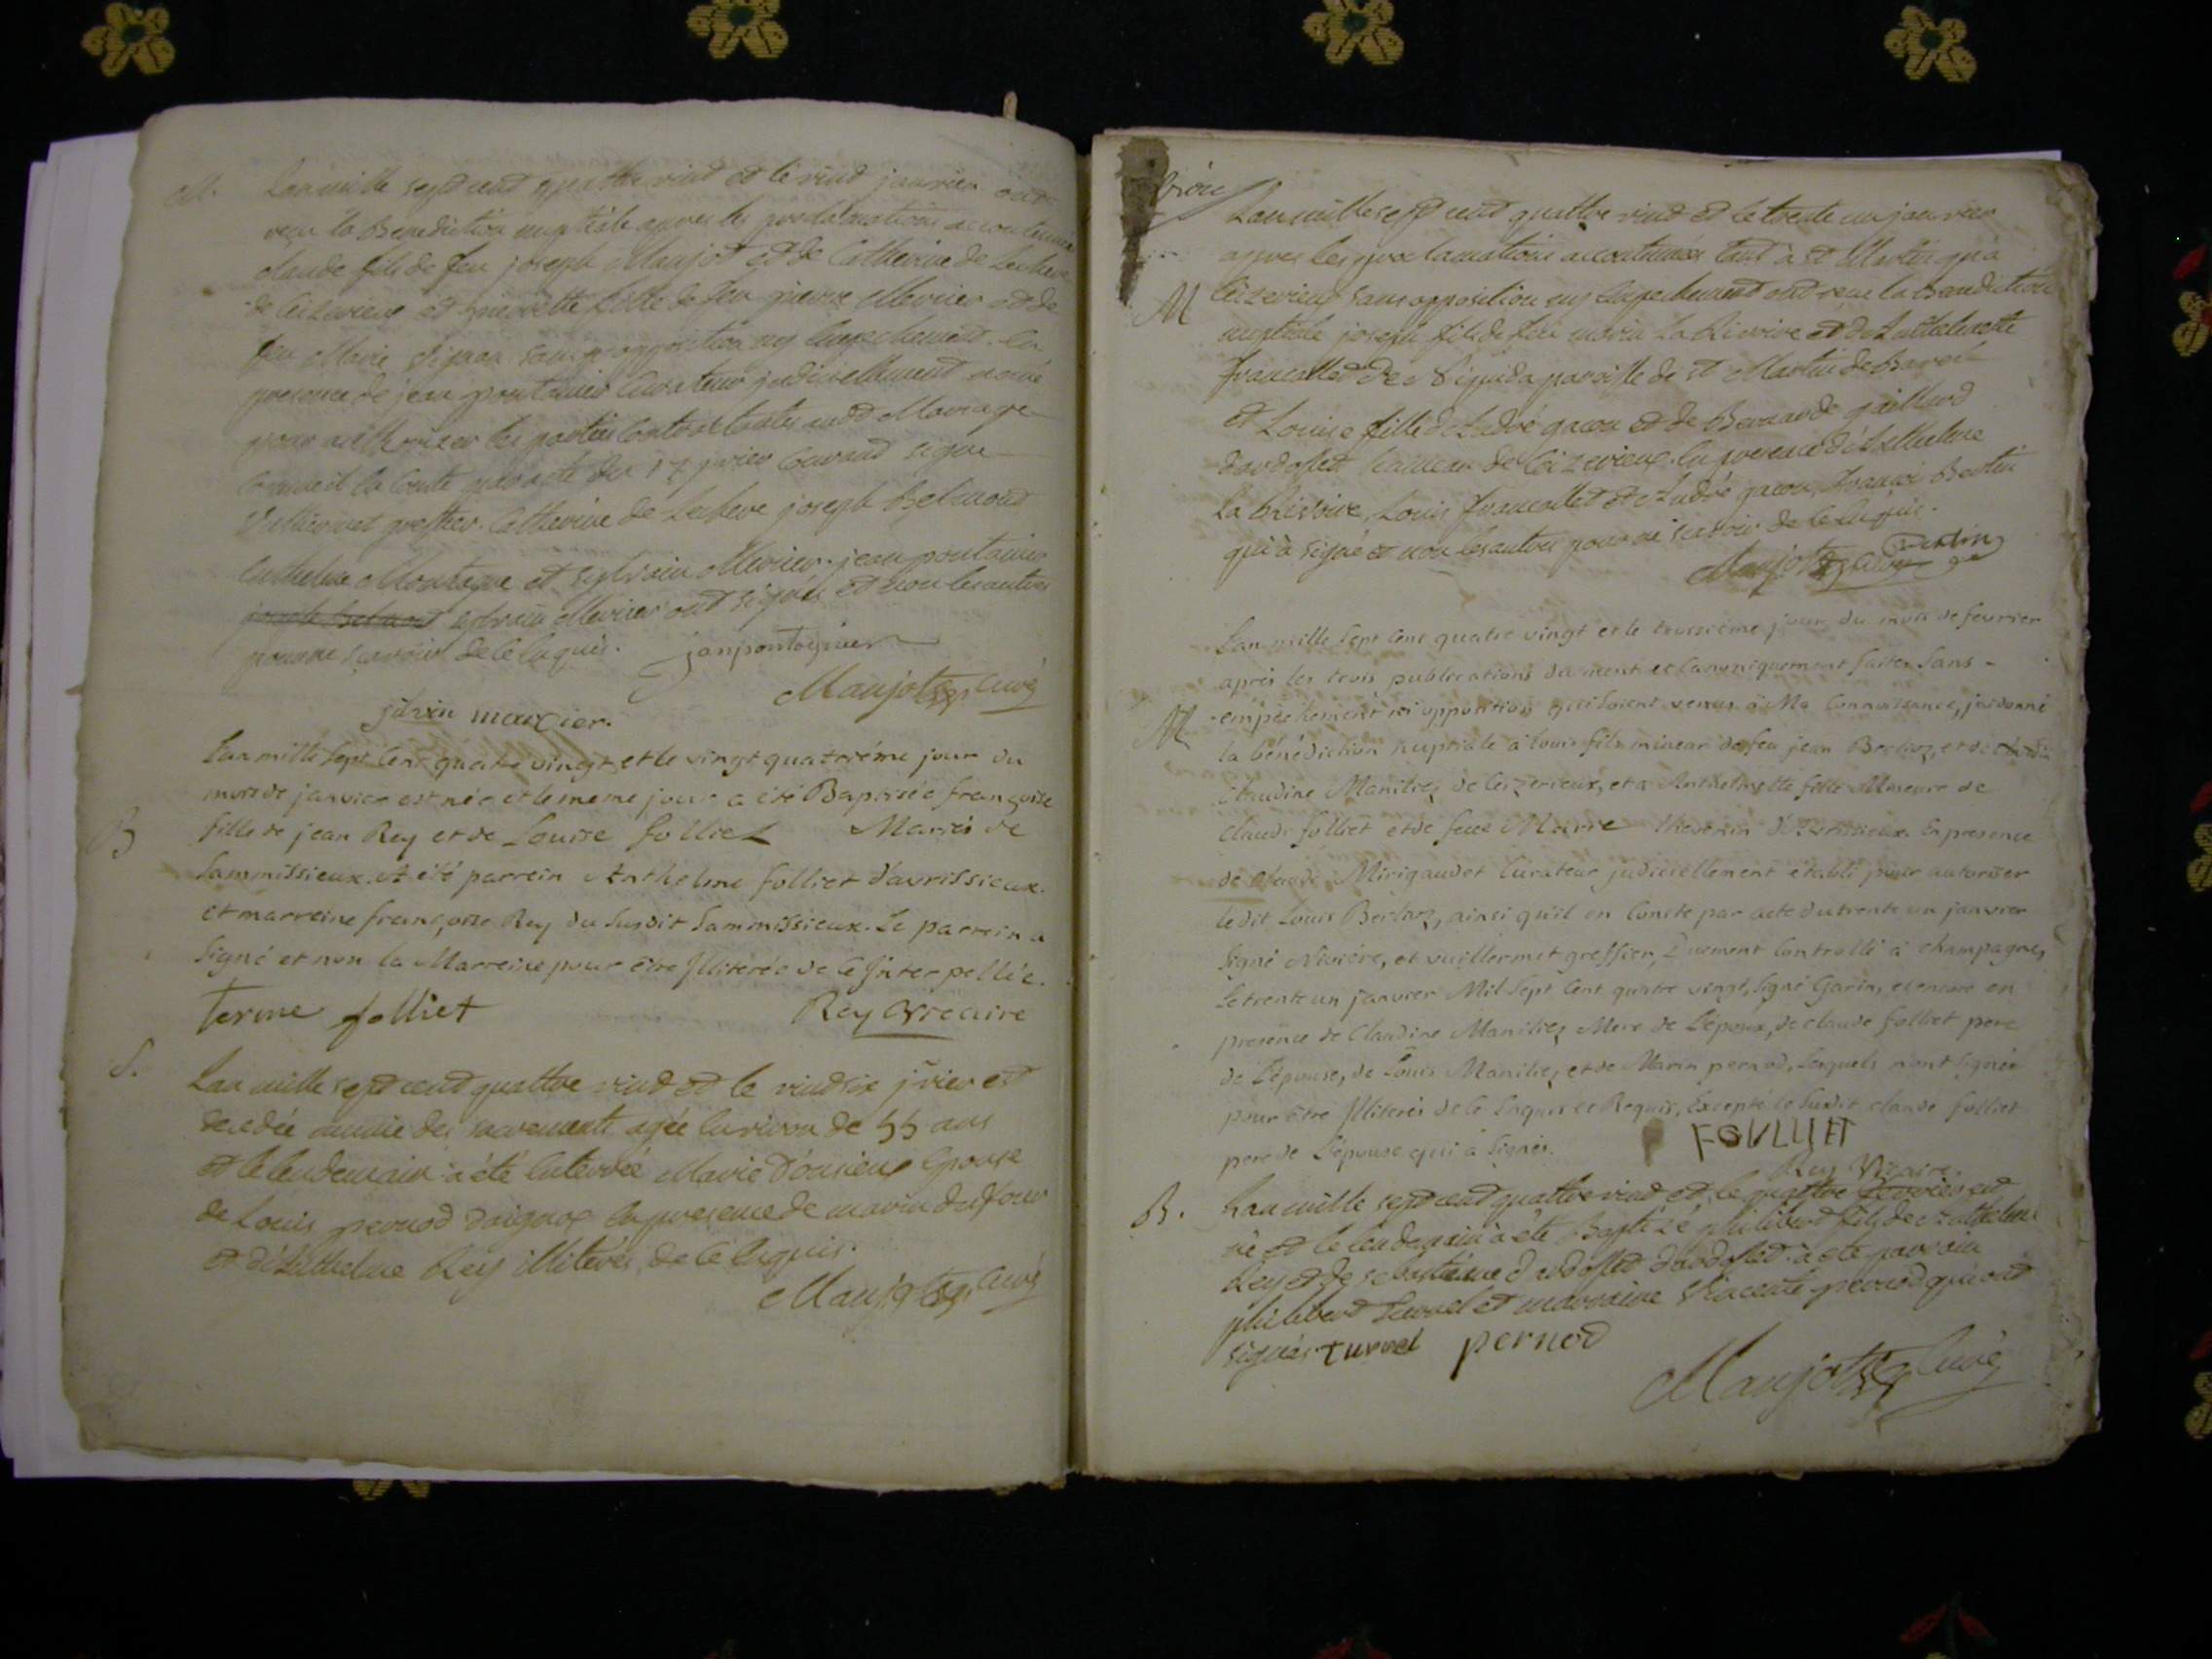 M. Lan mille sept cent quattre vint et le vint janvier ont
reçu la Benediction nuptiale apres les proclamations accoutumées
claude fils de feu joseph Maujot et de Catherine de Lecheve
de Ceizerieux et fille de feu pierre Mercier et de
feu Marie sans opposition ny Empechement. En
presence de jean pontanier Curateur judiciellement
pour authoriser les parties audt Mariage
comme il En Conste par acte du 17 jvier Courant signé
Vulliermet greffier. Catherine de Lecheve joseph Belmont
Anthelme et Sylvain Mercier. jean pontanier
joseph Belmont sylvain Mercier ont signés et non les autres
pour ne sçavoir de ce Enquis. janpontagnier
Maujot Curé
silvin mercier.
B L'an mille Sept Cent quatre vingt et le vingt quatrième jour du
mois de janvier est née et le meme jour a été Baptisée françoise
fille de jean Rey et de Louise folliet Mariés de
Sammissieux. A été parrein Anthelme folliet d'avrissieux.
et marreine françoise Rey du Susdit Sammissieux. Le parrein a
Signé et non la Marreine pour être Illiterée de ce Interpellée.
Terme folliet Rey Vicaire
S. Lan mille sept cent quattre vint et le vint six jvier est
decedée munie des sacrements agée Environ de 55 ans
et le lendemain à été Enterrée Marie Epouse
de Louis pernod d'aignoz En presence de marin dufour
et d'Anthelme Rey illiterés de ce Enquis.
Maujot Curé
Lan mille sept cent quattre vint et le trente un janvier
apres les proclamations accoutumées tant à st Martin qu'à
M Ceizerieux sans opposition ny Empechement ont reçu la Benediction
nuptiale joseph fils de feu marin La Brivoire et d'Anthelmette
francallet de paroisse de st Martin de Bavel
et Louise fille d'André gacon et de Bernarde gaillard
d'ardosset hameau de Ceizerieux. En presence d'Anthelme
La Brivoire, Louis francallet et André gacon, françois Bertin
qui à signé et non les autres pour ne sçavoir de ce Enquis.
Bertin
Maujot Curé
L'an mille Sept Cent quatre vingt et le troisième jour du mois de fevrier
après les trois publications dument et Canoniquement faites Sans
M empêchement ni opposition qui soient venus à Ma Connoissance, j'ai donné
la bénédiction nuptiale à louis fils mineur de feu jean Berlioz, et de
Claudine Maniliez de Ceizerieux, et à Anthelmette fille Mineure de
Claude folliet et de feue Marie thevenin d'Avrissieux. En presence
de Claude Mirigaudet Curateur judiciellement établi pour autoriser
le dit Louis Berlioz, ainsi qu'il en Conste par acte du trente un janvier
Signé Niviére, et vuillermet greffier, Duement Controllé à champagne,
Le trente un janvier Mil Sept Cent quatre vingt, Signé Garin, et encore en
presence de Claudine Maniliez Mere de L'époux, de claude folliet pere
de L'épouse, de Louis Maniliez et de Marin pernod, Lesquels n'ont Signés
pour être Illiterés de ce Enquis et Requis, Excepté le Susdit claude folliet
pere de L'épouse qui à Signé.
FOULLIET
Rey Vicaire.
B. Lan mille sept cent quattre vint et le quattre fevrier est
né et le lendemain à été Baptizé philibert fils de anthelme
Rey et de sebastiene d'ardosset à été parrain
philibert turrel et marraine pernod qui ont
signés. turrel pernod
Maujot Curé